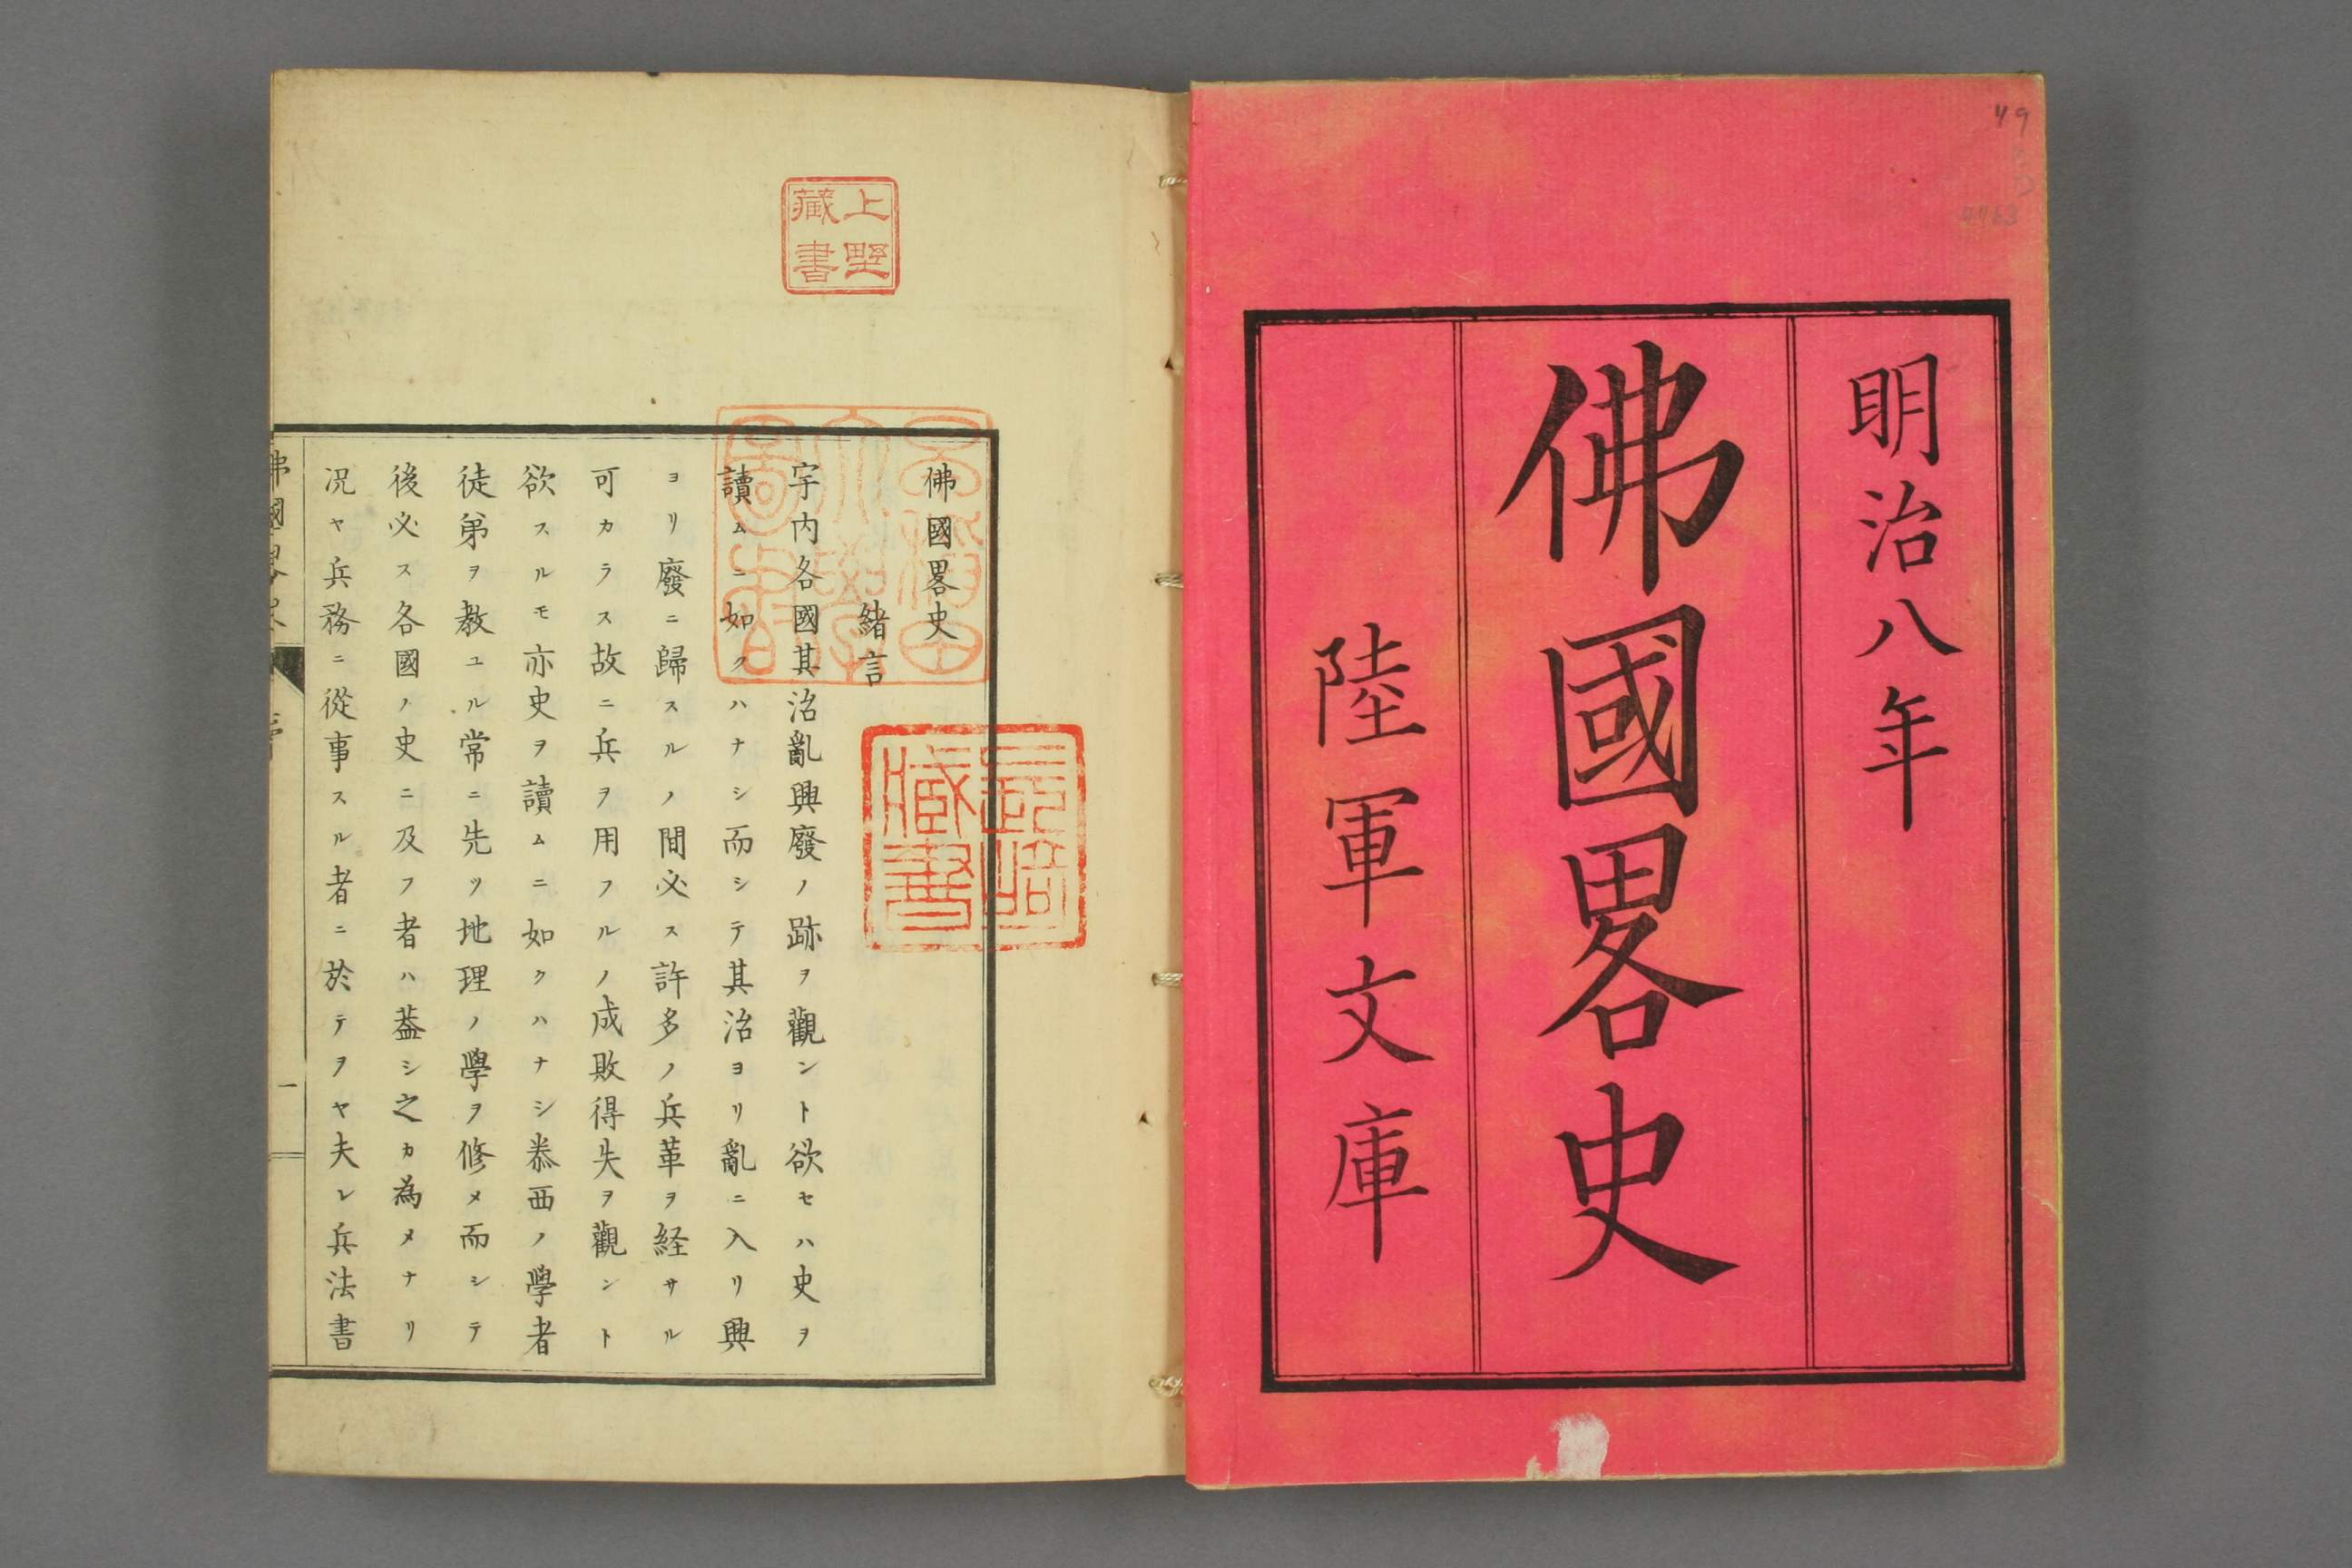 明治八年
佛國畧史
陸軍文庫
佛國畧史
緒言
宇内各國其治亂興廢ノ跡ヲ觀ント欲セハ史ヲ
讀ムニ如クハナシ而シテ其治ヨリ亂ニ入リ興
ヨリ廢ニ歸スルノ間必ス許多ノ兵革ヲ経サル
可カラス故ニ兵ヲ用フルノ成敗得失ヲ觀ント
欲スルモ亦史ヲ讀ムニ如クハナシ泰西ノ學者
徒弟ヲ教ユル常ニ先ツ地理ノ學ヲ修メ而シテ
後必ス各國ノ史ニ及フ者ハ蓋シ之カ為メナリ
况ヤ兵務ニ從事スル者ニ於テヲヤ夫レ兵法書
上野
藏書
早稲田
大學
圖書
長崎
臧書
一